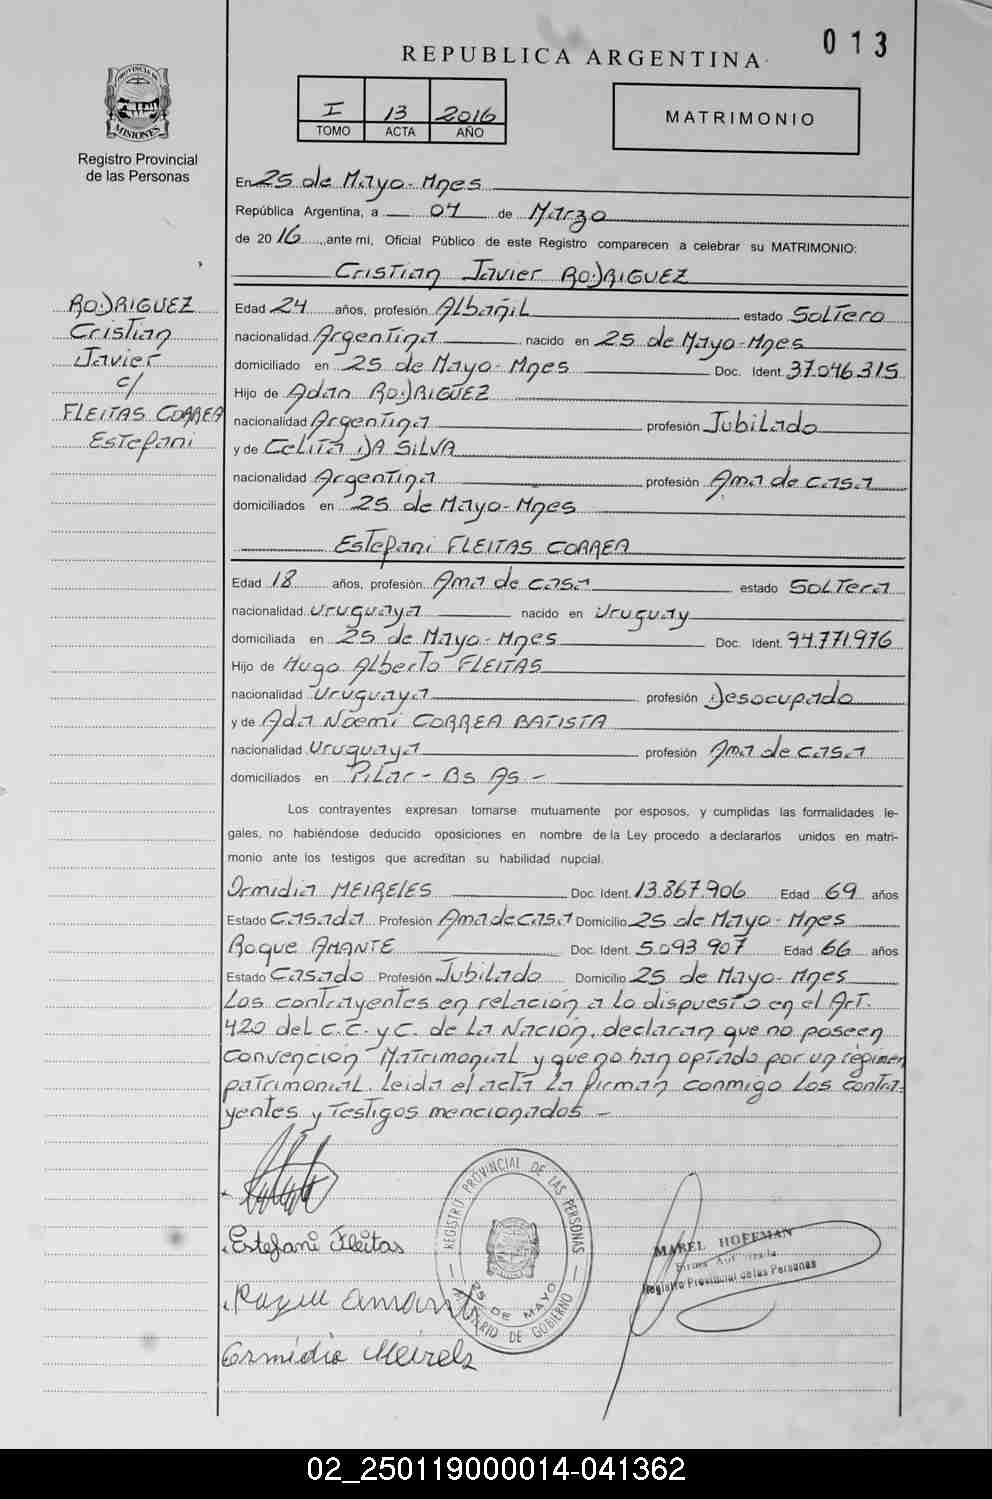 013
REPUBLICA ARGENTINA
I 13 2016
TOMO ACTA AÑO
MATRIMONIO
PROVINCIA DE
MISIONES
Registro Provincial
de las Personas
En 25 de Mayo - Mnes
República Argentina, a 04 de Marzo
de 2016, ante mi, Oficial Público de este Registro comparecen a celebrar su MATRIMONIO:
Cristian Javier RODRIGUEZ
RODRIGUEZ
Cristian
Javier
c/
FLEITAS CORREA
Estefani
Edad 24 años, profesión Albañil estado Soltero
nacionalidad Argentina nacido en 25 de Mayo - Mnes
domiciliado en 25 de Mayo - Mnes Doc. Ident. 37.046.315
Hijo de Adan RODRIGUEZ
nacionalidad Argentina profesión Jubilado
y de Celita DA SILVA
nacionalidad Argentina profesión Ama de casa
domiciliados en 25 de Mayo - Mnes
Estefani FLEITAS CORREA
Edad 18 años, profesión Ama de casa estado Soltera
nacionalidad Uruguaya nacido en Uruguay
domiciliada en 25 de Mayo - Mnes Doc. Ident. 94.771.976
Hijo de Hugo Alberto FLEITAS
nacionalidad Uruguaya profesión Desocupado
y de Ada Noemi CORREA BATISTA
nacionalidad Uruguaya profesión Ama de casa
domiciliados en Pilar - Bs As -
Los contrayentes expresan tomarse mutuamente por esposos, y cumplidas las formalidades le-
gales, no habiéndose deducido oposiciones en nombre de la Ley procedo a declararlos unidos en matri-
monio ante los testigos que acreditan su habilidad nupcial.
Ormidia MEIRELES Doc. Ident. 13.867.906 Edad 69 años
Estado Casada Profesión Ama de casa Domicilio 25 de Mayo - Mnes
Roque AMANTE Doc. Ident. 5.093.907 Edad 66 años
Estado Casado Profesión Jubilado Domicilio 25 de Mayo - Mnes
Los contrayentes en relación a lo dispuesto en el Art.
420 del C.C. y C. de la Nación, declaran que no poseen
convención Matrimonial y que no han optado por un régimen
patrimonial. Leida el acta la firman conmigo los contra-
yentes y testigos mencionados -
Estefani Fleitas
Roque Amant
Ormidia Meirels
REGISTRO PROVINCIAL DE LAS PERSONAS
25 DE MAYO
MINISTERIO DE GOBIERNO
MABEL HOFFMAN
Firma Autorizada
Registro Provincial de las Personas
02_250119000014-041362